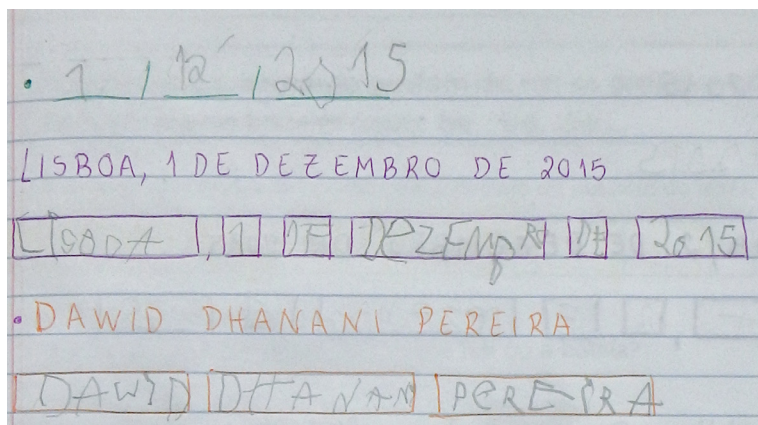 1 / 12 / 2015
LISBOA, 1 DE DEZEMBRO DE 2015
LISBOA, 1 DE DEZEMBRO DE 2015
DAWID DHANANI PEREIRA
DAWID DHANAN PEREIRA